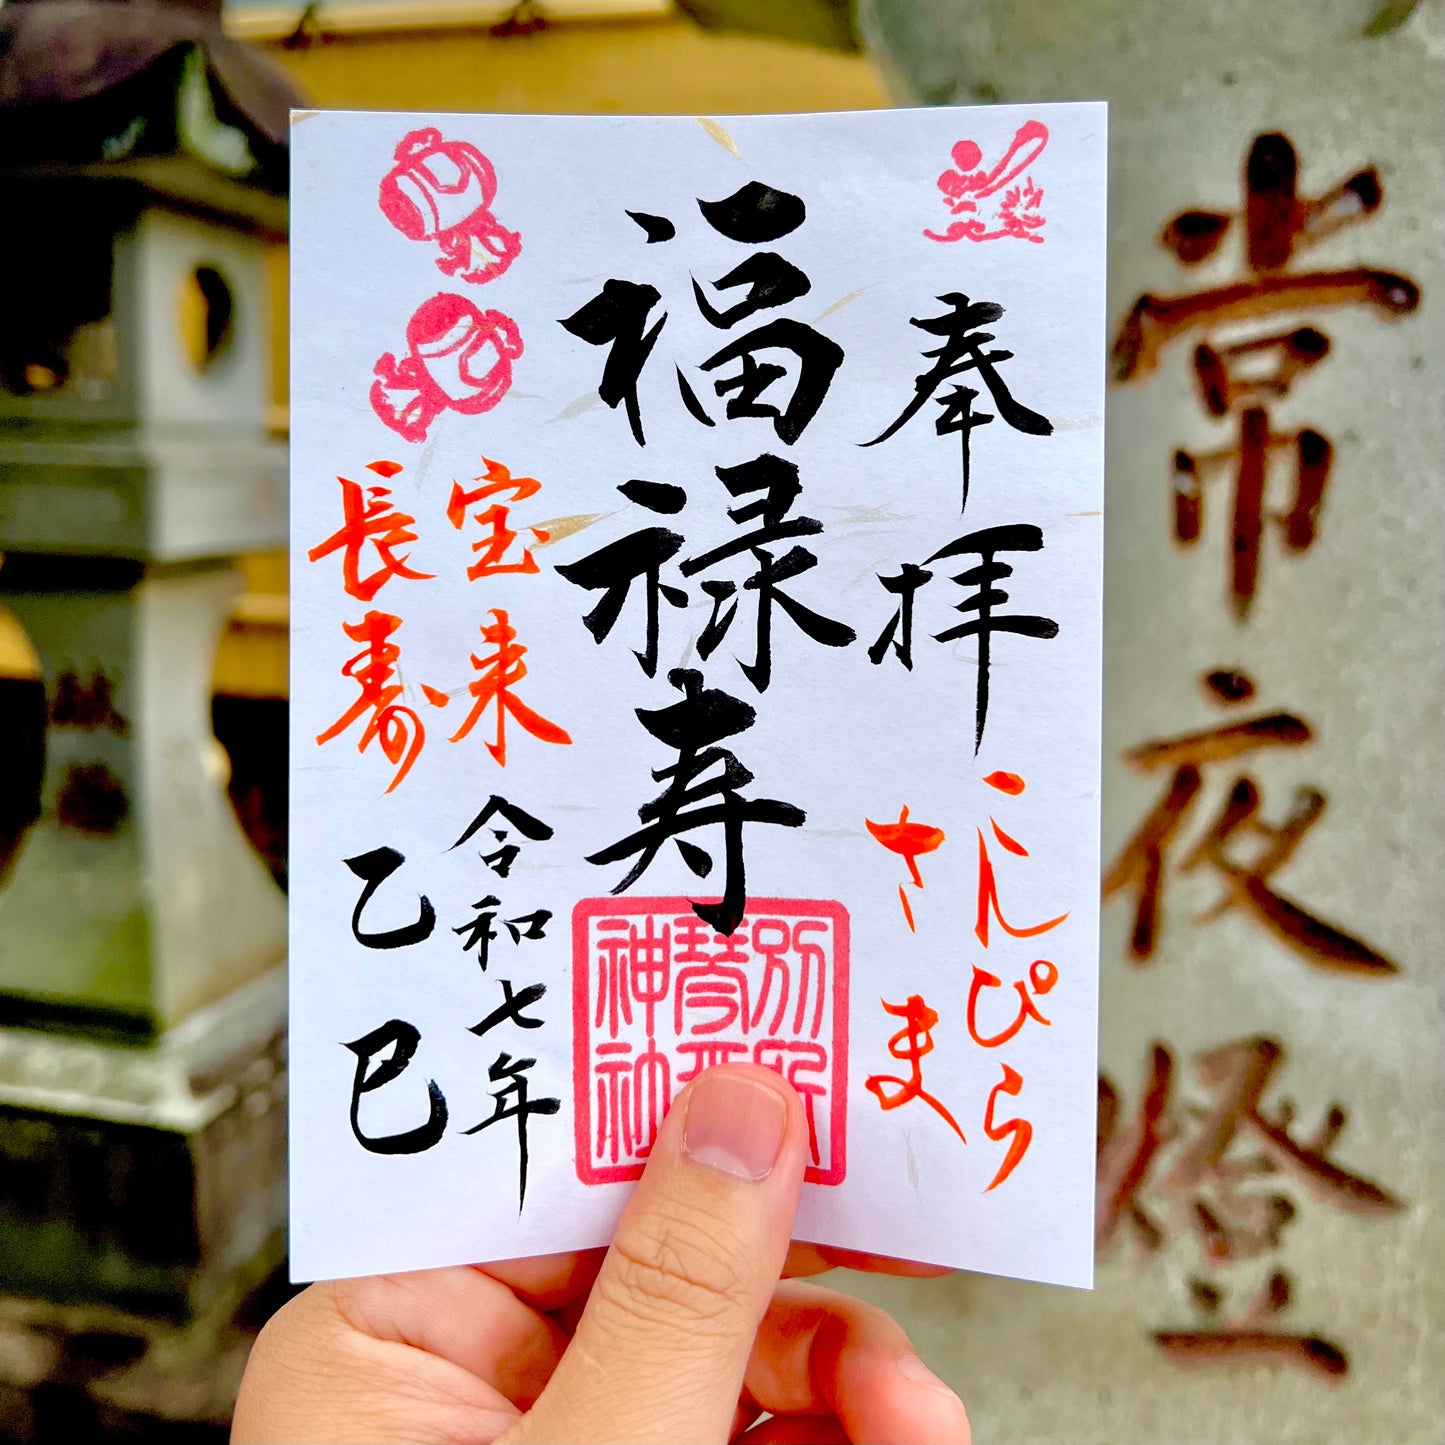 奉拝
こんぴら
さま
福禄寿
宝来
長寿
令和七年
乙巳
別所
琴平
神社
常夜燈